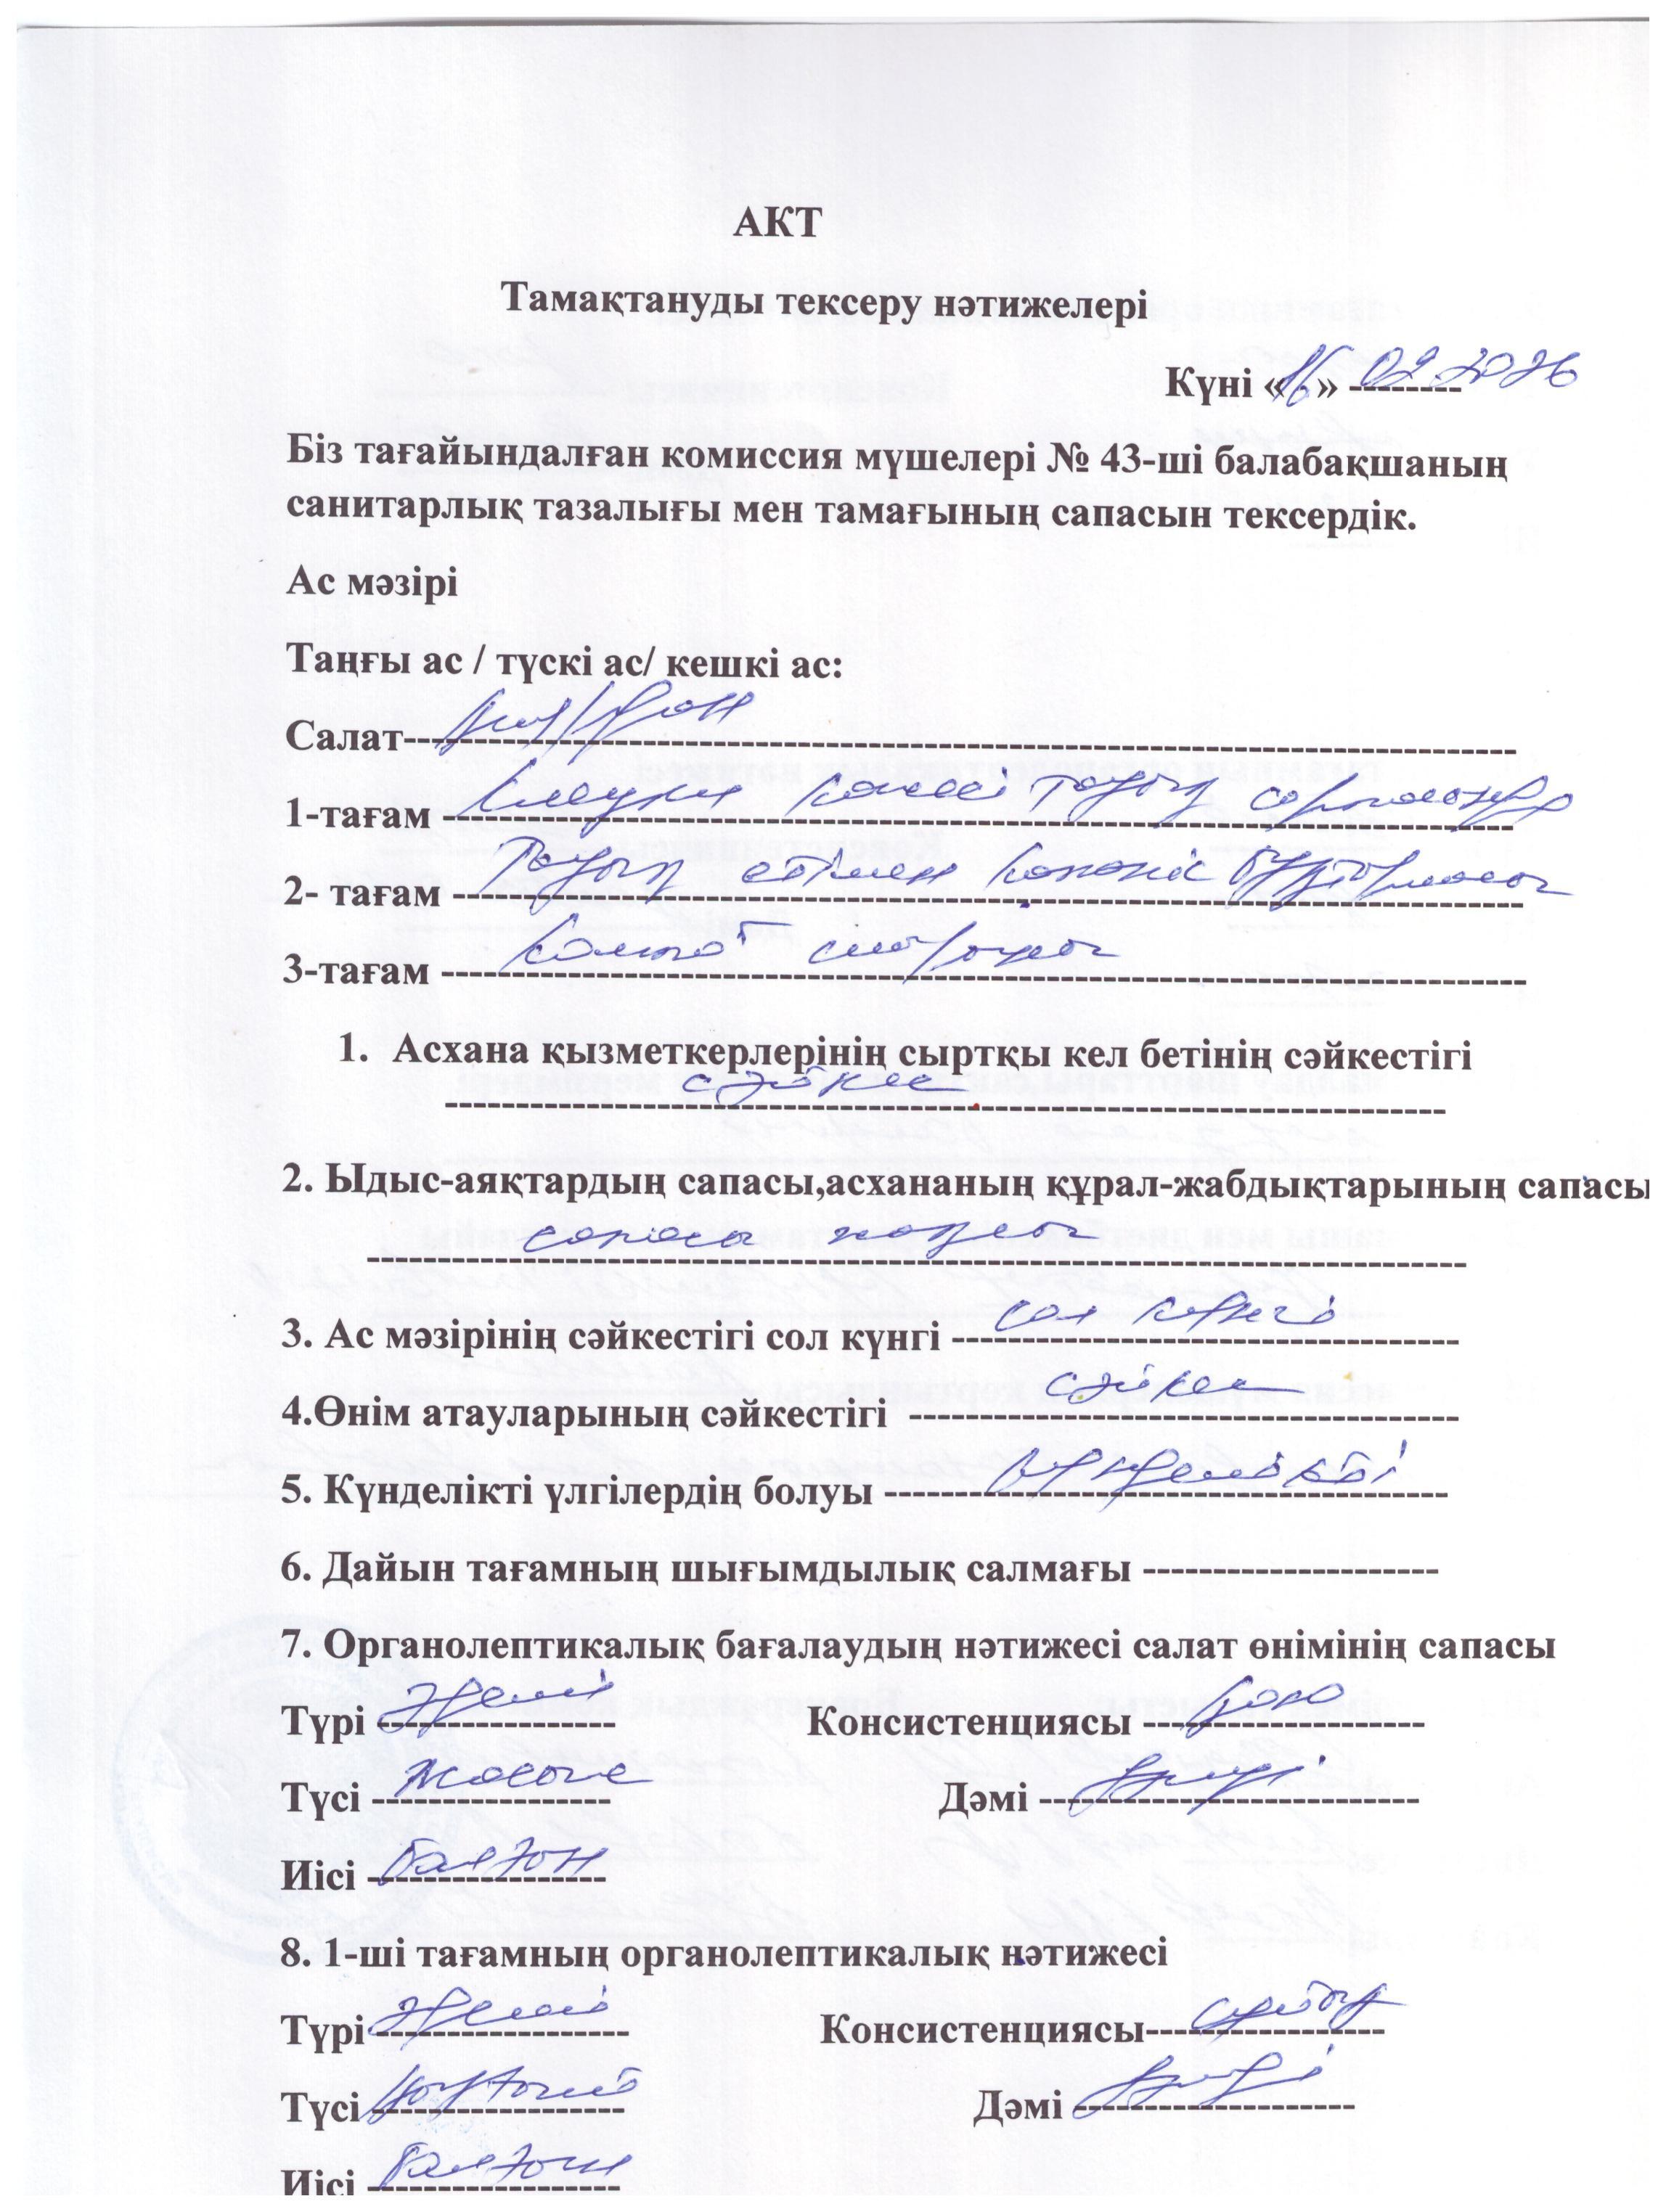 АКТ
Тамақтануды тексеру нәтижелері
Күні «16» 02 2026
Біз тағайындалған комиссия мүшелері № 43-ші балабақшаның
санитарлық тазалығы мен тамағының сапасын тексердік.
Ас мәзірі
Таңғы ас / түскі ас/ кешкі ас:
Салат
1-тағам көжесі тауық
2- тағам Тауық етімен көкөніс бұқтырмасы
3-тағам Компот
1. Асхана қызметкерлерінің сыртқы кел бетінің сәйкестігі
сәйкес
2. Ыдыс-аяқтардың сапасы,асхананың құрал-жабдықтарының сапасы
сапасы жақсы
3. Ас мәзірінің сәйкестігі сол күнгі сол күнгі
4.Өнім атауларының сәйкестігі сәйкес
5. Күнделікті үлгілердің болуы күнделікті
6. Дайын тағамның шығымдылық салмағы
7. Органолептикалық бағалаудың нәтижесі салат өнімінің сапасы
Түрі әдемі Консистенциясы қою
Түсі жасыл Дәмі дәмді
Иісі балғын
8. 1-ші тағамның органолептикалық нәтижесі
Түрі әдемі Консистенциясы сұйық
Түсі Дәмі дәмді
Иісі балғын